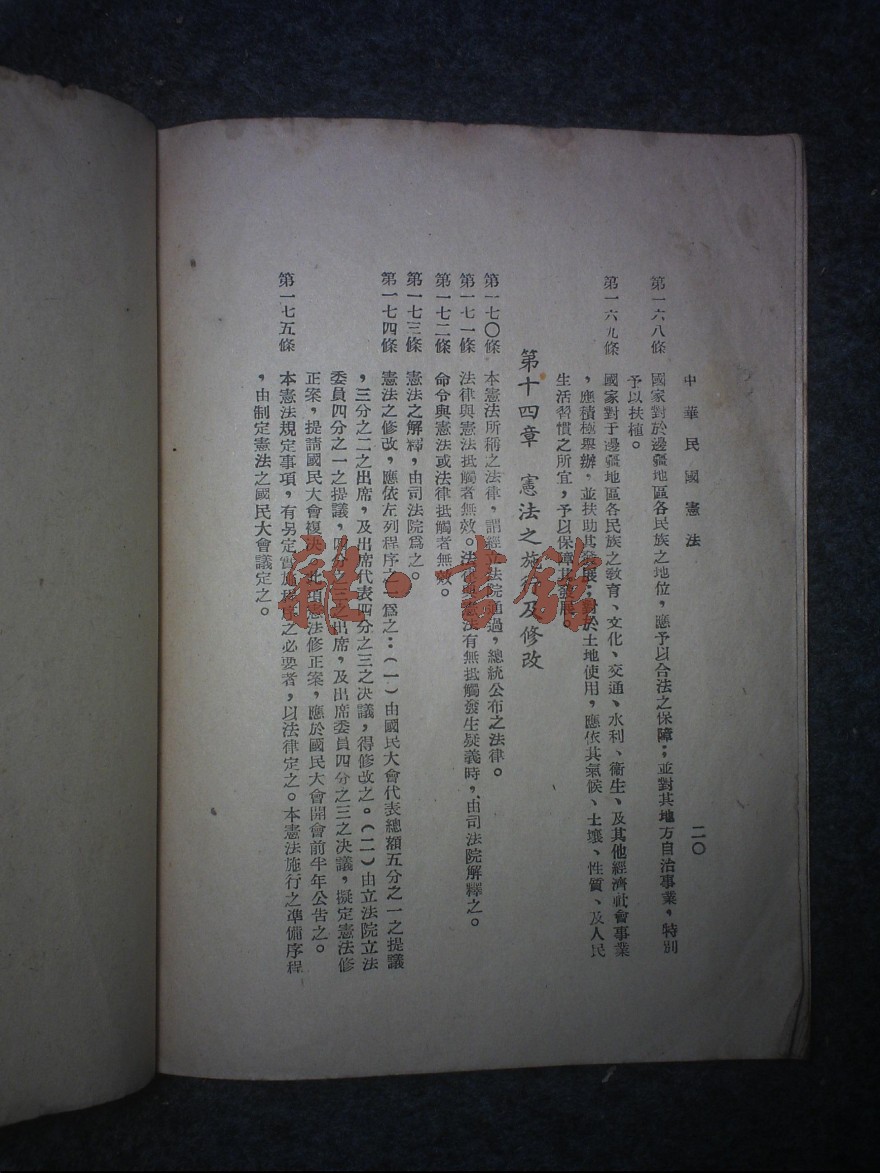 中華民國憲法
二〇
第一六八條 國家對於邊疆地區各民族之地位,應予以合法之保障;並對其地方自治事業,特別
予以扶植。
第一六九條 國家對于邊疆地區各民族之敎育、文化、交通、水利、衞生、及其他經濟社會事業
,應積極舉辦,並扶助其發展;對於土地使用,應依其氣候、土壤、性質、及人民
生活習慣之所宜,予以保障其發展。
第十四章 憲法之施行及修改
第一七〇條 本憲法所稱之法律,謂經立法院通過,總統公布之法律。
第一七一條 法律與憲法抵觸者無效。法律與憲法有無抵觸發生疑義時,由司法院解釋之。
第一七二條 命令與憲法或法律抵觸者無效。
第一七三條 憲法之解釋,由司法院爲之。
第一七四條 憲法之修改,應依左列程序之一爲之:(一)由國民大會代表總額五分之一之提議
,三分之二之出席,及出席代表四分之三之決議,得修改之。(二)由立法院立法
委員四分之一之提議,四分之三之出席,及出席委員四分之三之決議,擬定憲法修
正案,提請國民大會複決。此項憲法修正案,應於國民大會開會前半年公告之。
第一七五條 本憲法規定事項,有另定實施程序之必要者,以法律定之。本憲法施行之準備序程
,由制定憲法之國民大會議定之。
書館